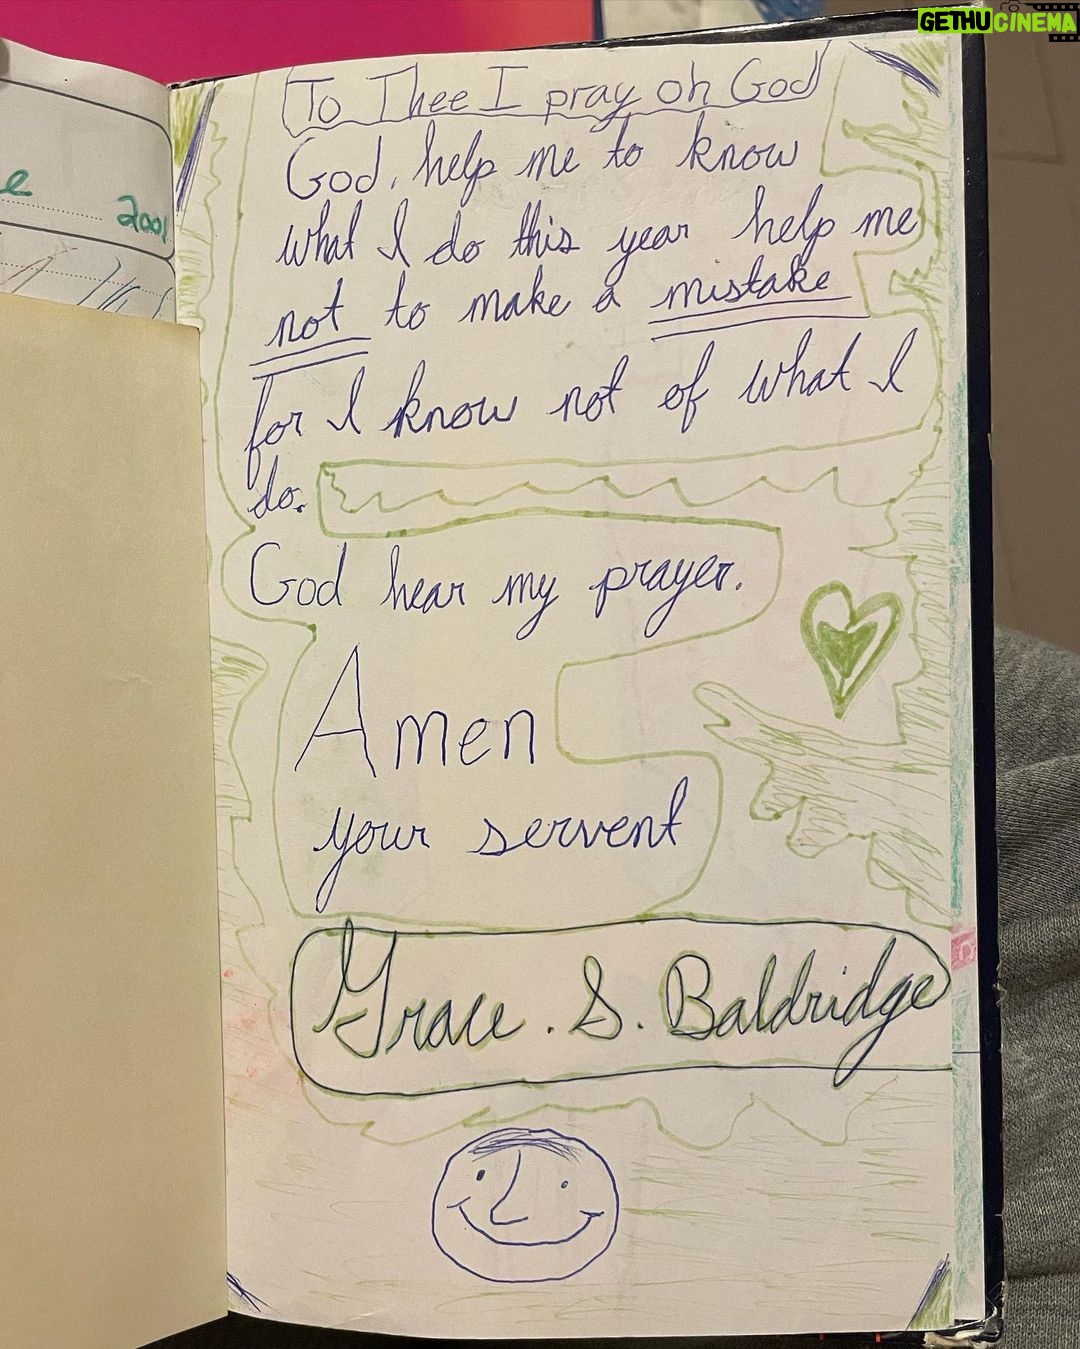 GETHUCINEMA
To Thee I pray oh God
God, help me to know
what I do this year help me
not to make a mistake
for I know not of what I
do.
God hear my prayer.
Amen
your servent
Grace. S. Baldridge
e
2001